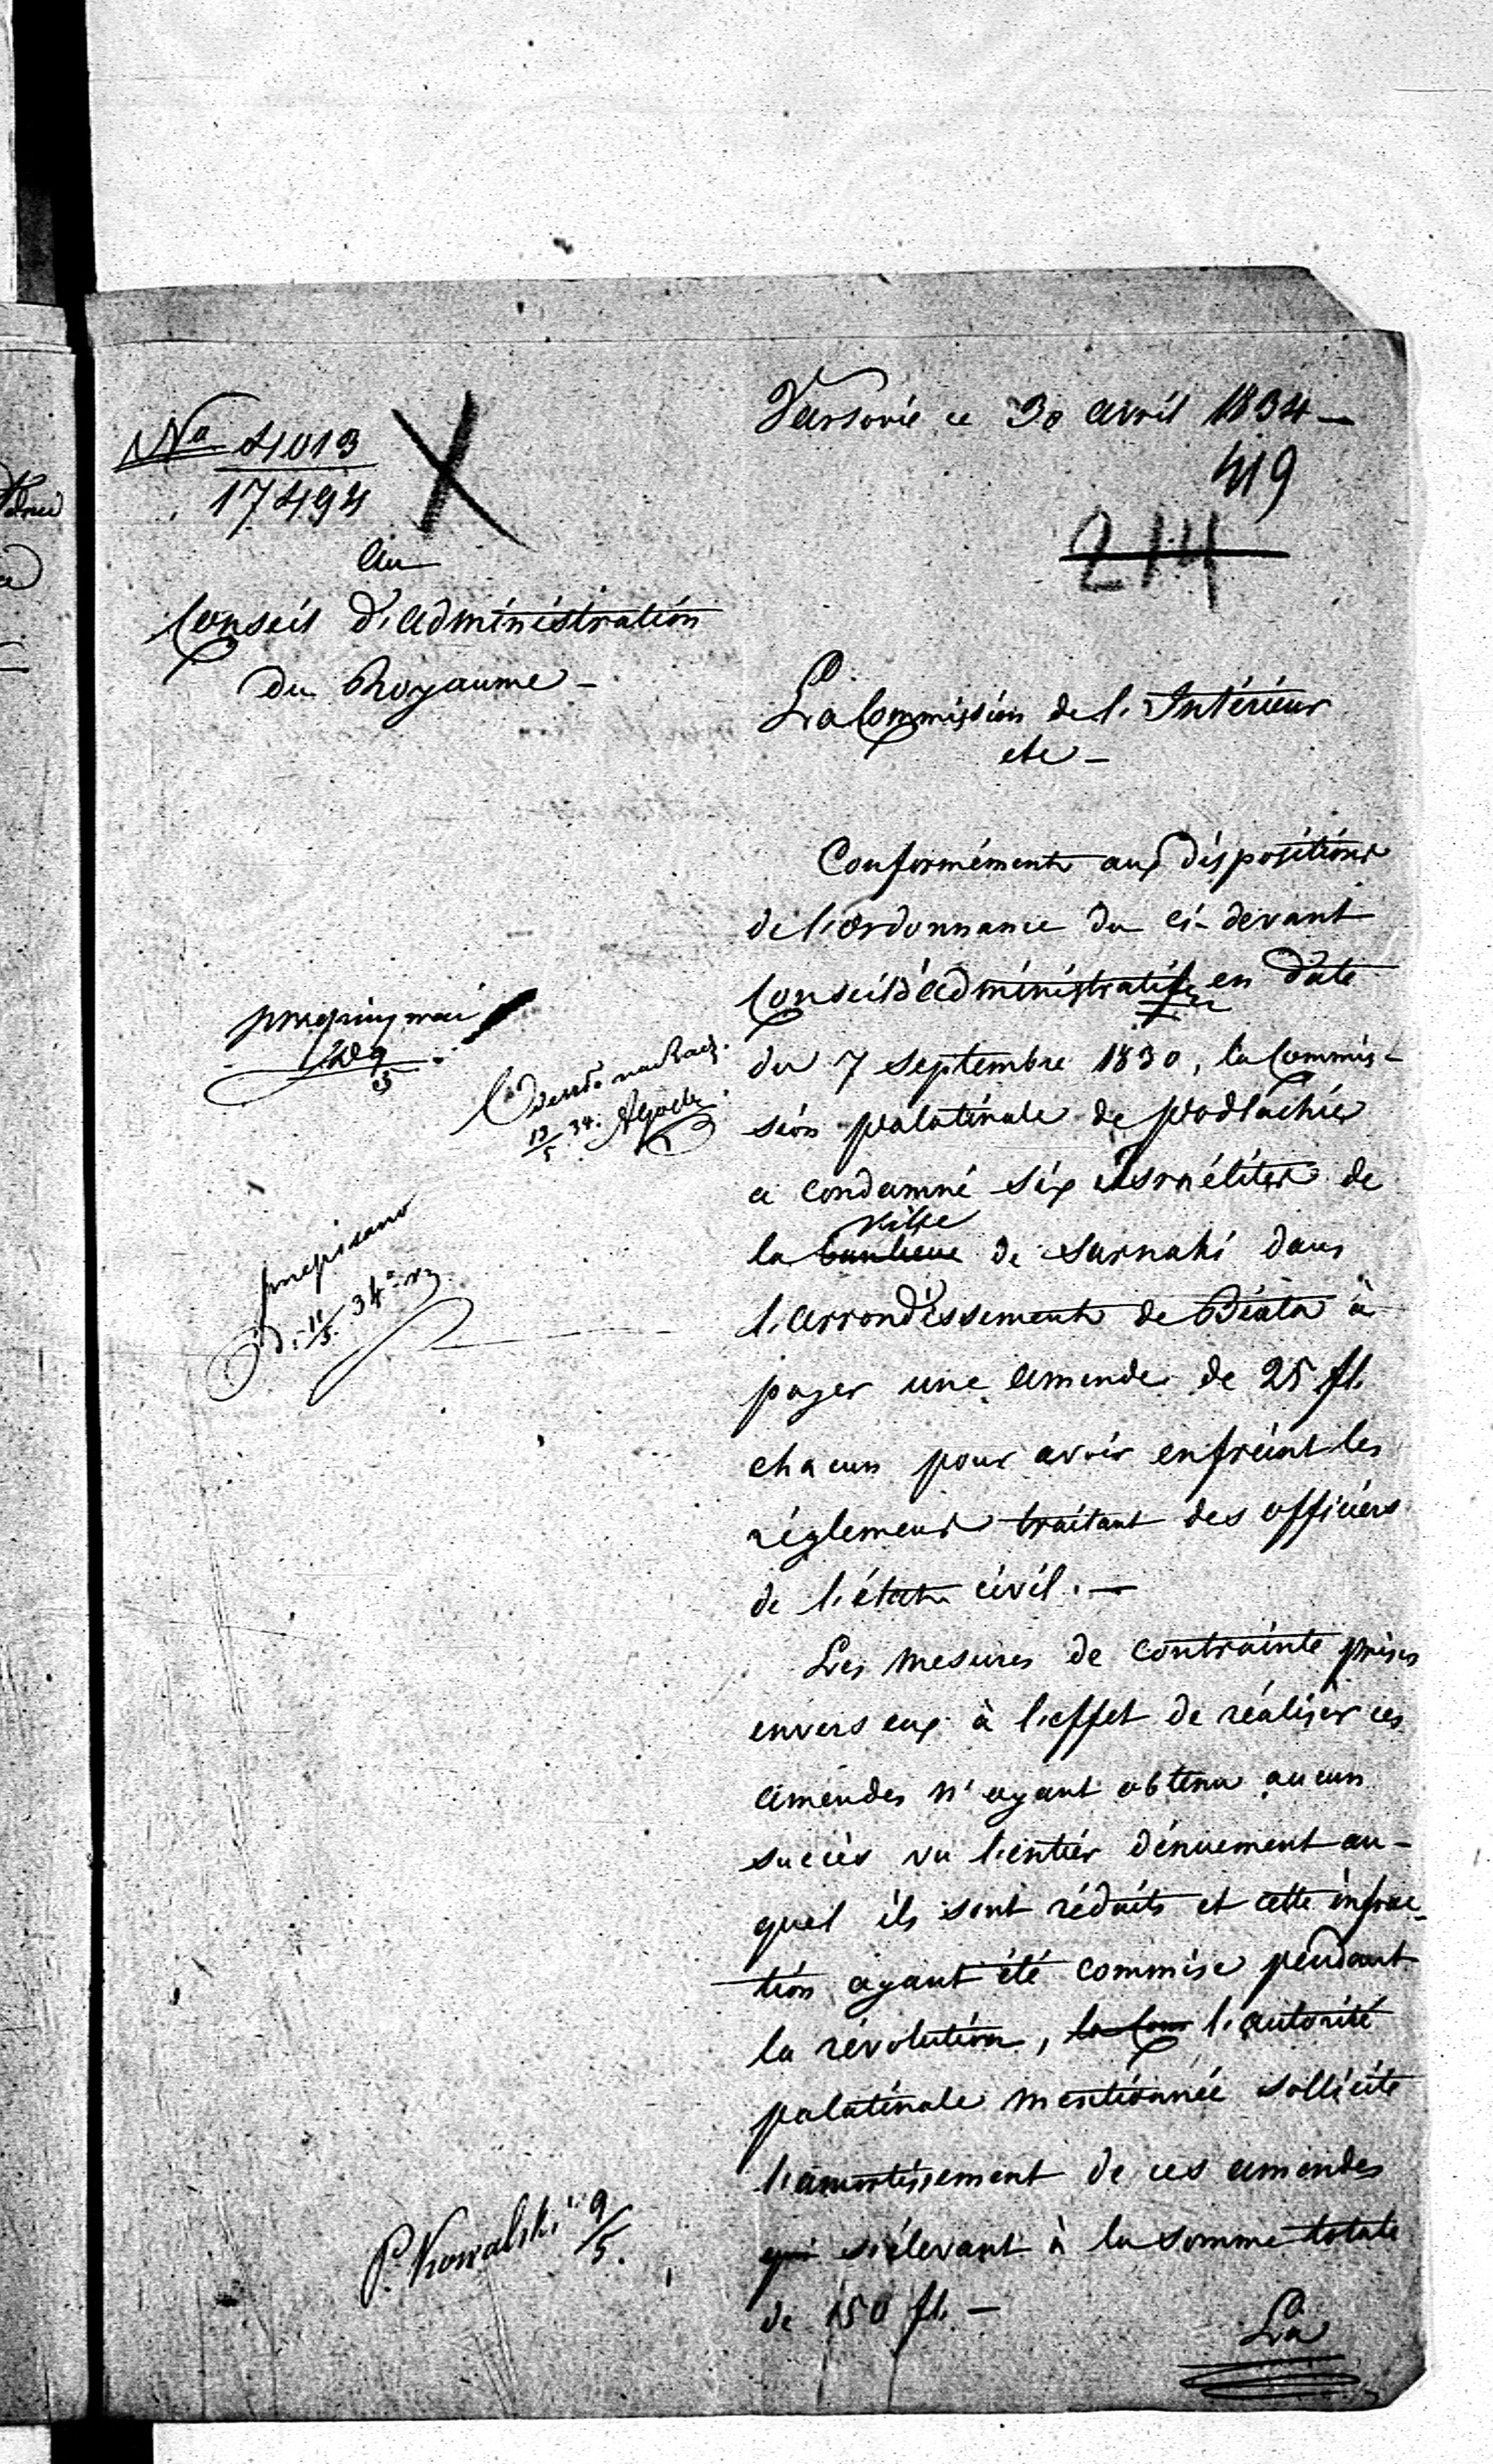 No 4013
17494
Varsovie ce 30 avril 1834 —
419
214
Au
Conseil d'administration
du Royaume —
La Commission de l'Intérieur
etc —
Conformément aux dispositions
de l'ordonnance du ci-devant
Conseil d'administratif en date
du 7 septembre 1830, la Commis-
sion palatinale de Podlachie
a condamné six Israélites de
ville
la banlieue de Sarnaki dans
l'arrondissement de Biała à
payer une amende de 25 fl.
chacun pour avoir enfreint les
réglemens traitant des officiers
de l'état civil. —
Les mesures de contrainte prises
envers eux à l'effet de réaliser ces
amendes n'ayant obtenu aucun
succès vu l'entier dénuement au-
quel ils sont réduits et cette infrac-
tion ayant été commise pendant
la révolution, la Com l'autorité
palatinale mentionnée sollicite
l'amortissement de ces amendes
qui s'élevant à la somme totale
de 150 fl. —
La
13/5 34.
przepisano
d. 11/5 34
P. Kowalski 9/5.